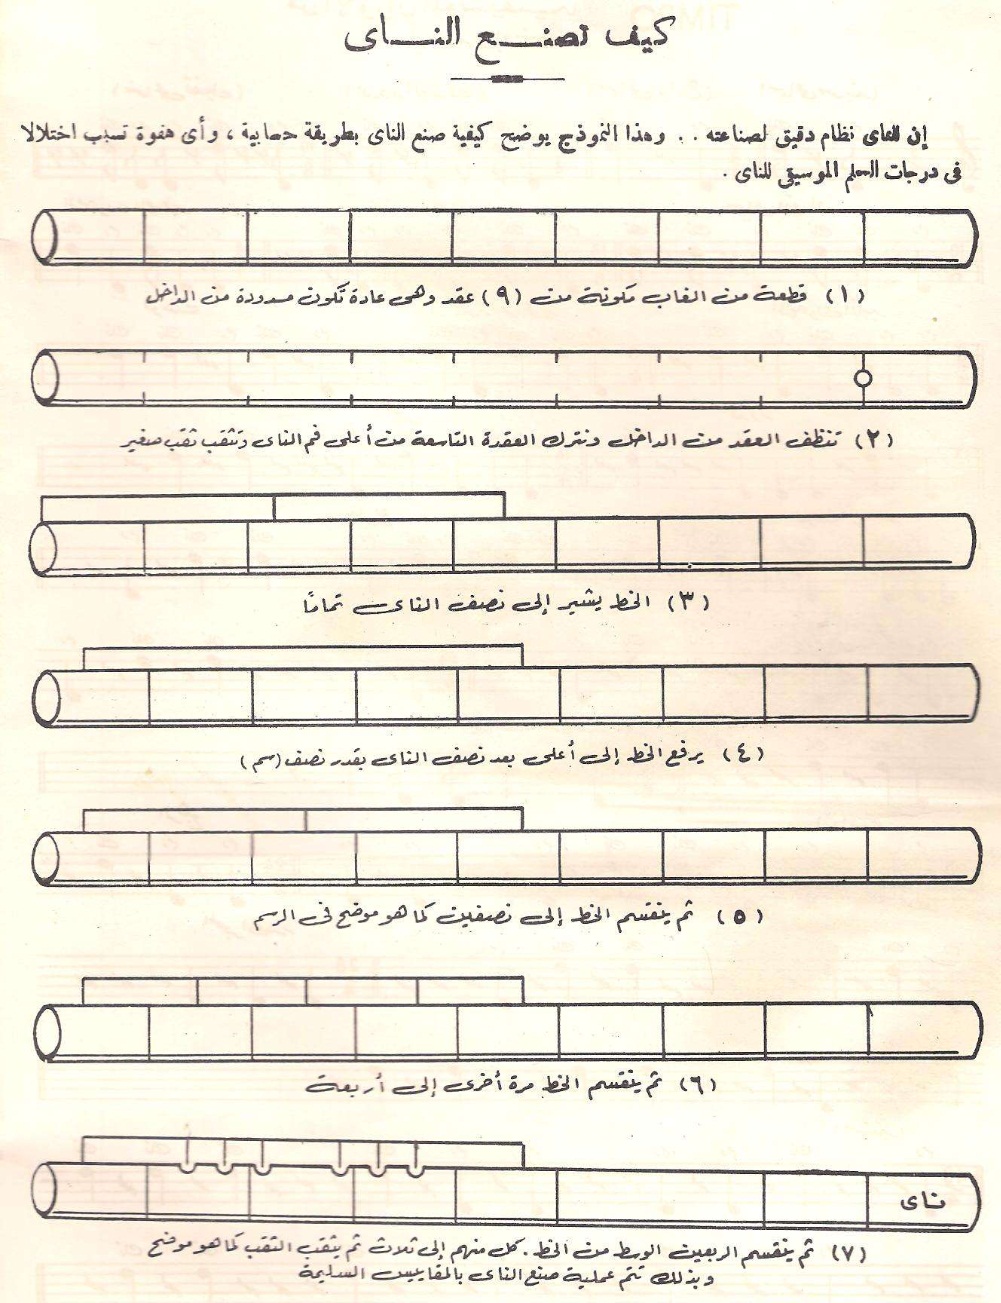 كيف تصنع الناى
إن للناى نظام دقيق لصناعته . . وهذا النموذج يوضح كيفية صنع الناى بطريقة حسابية ، وأى هفوة تسبب اختلالا
فى درجات السلم الموسيقى للناى .
(١) قطعة من الغاب مكونة من (٩) عقد وهى عادة تكون مسدودة من الداخل
(٢) تنظف العقد من الداخل ونترك العقدة التاسعة من أعلى فم الناى وتثقب ثقب صغير
(٣) الخط يشير إلى نصف الناى تمامًا
(٤) يرفع الخط إلى أعلى بعد نصف الناى بقدر نصف (سم)
(٥) ثم ينقسم الخط إلى نصفين كما هو موضح فى الرسم
(٦) ثم ينقسم الخط مرة أخرى إلى أربعة
ناى
(٧) ثم ينقسم الربعين الوسط من الخط . كل منهم إلى ثلاث ثم يثقب الثقب كما هو موضح
وبذلك تتم عملية صنع الناى بالمقاييس السليمة